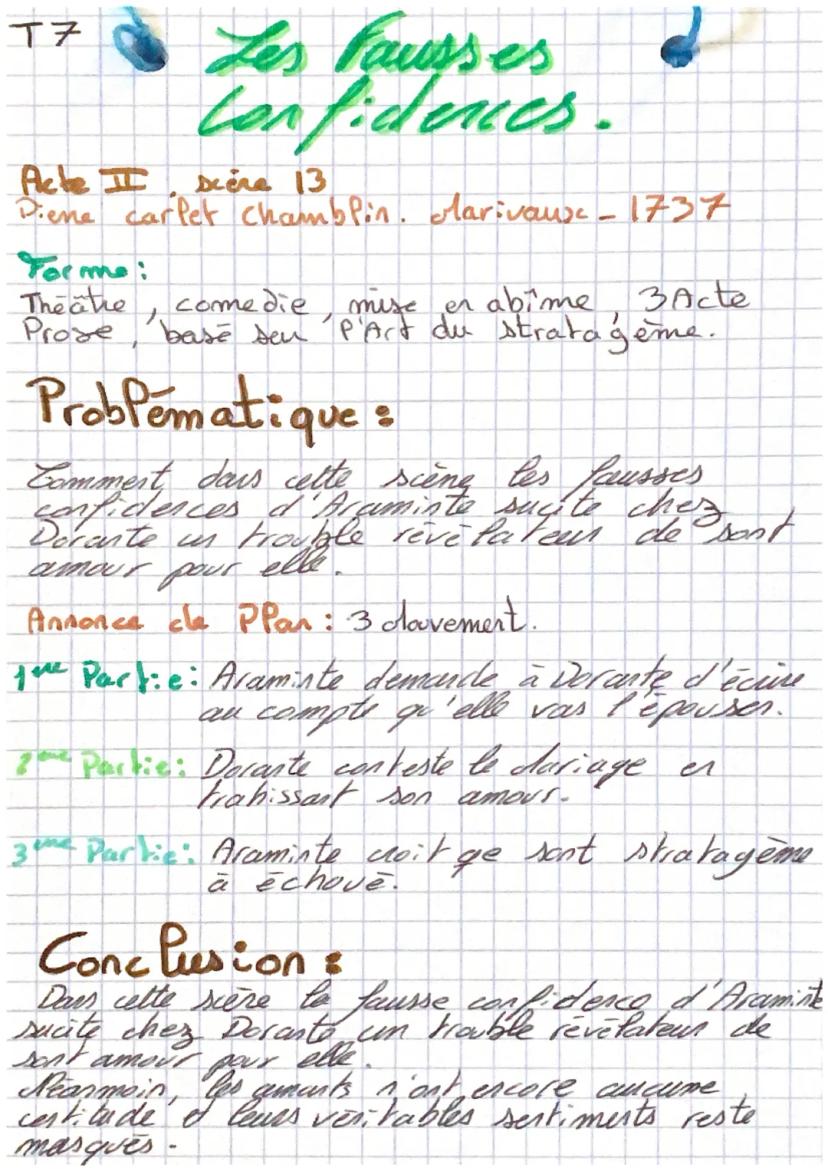 T7
Les Fausses
Confidences.
Acte II, scène 13
Pierre carlet Chamblin. Marivaux - 1737
Forme :
Théâtre, comedie, mise en abîme, 3 Acte
Prose, basé seu l'Art du stratagème.
Problématique :
Comment dans cette scène les fausses
confidences d'Araminte sucite chez
Dorante un trouble révélateur de sont
amour pour elle.
Annonce de Plan : 3 Mouvement.
1ere Partie : Araminte demande à Dorante d'écrire
au compte qu'elle vas l'épouser.
2eme Partie : Dorante conteste le Mariage en
trahissant son amour.
3eme Partie : Araminte croit qe sont stratagème
à échoué.
Conclusion :
Dans cette scène la fausse confidence d'Araminte
sucite chez Dorante un trouble révélateur de
sont amour pour elle.
Néanmoin, les amants n'ont encore aucune
certitude et leurs véritables sentiments reste
masqués.